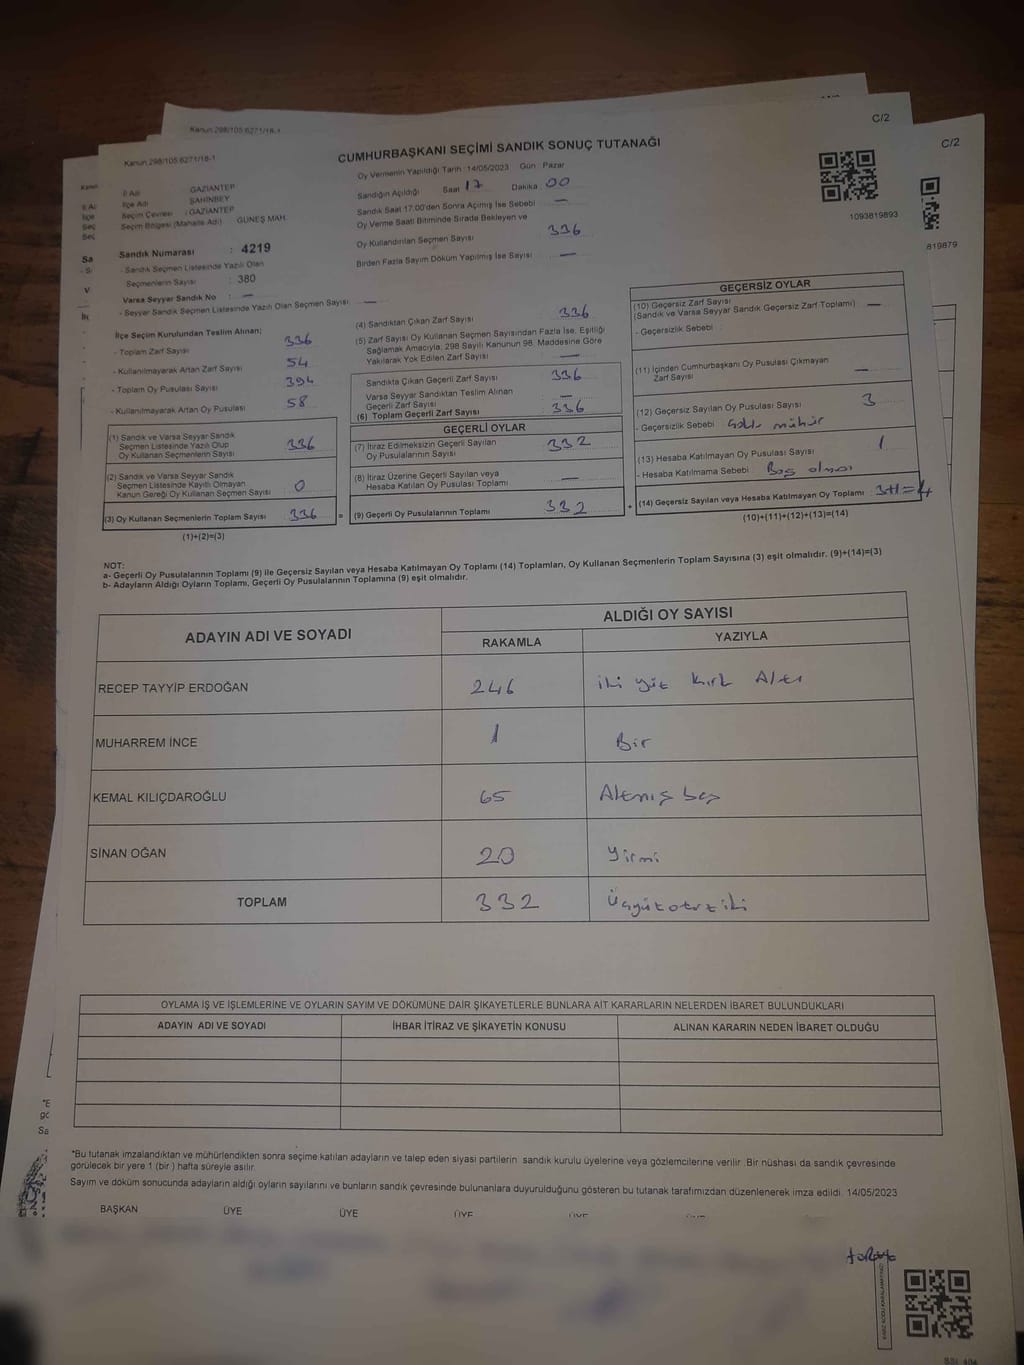 Kanun 298/105 6271/18-1
C/2
Kanun 298/105 6271/18-1
CUMHURBAŞKANI SEÇİMİ SANDIK SONUÇ TUTANAĞI
C/2
İl Adı GAZİANTEP
İlçe Adı ŞAHİNBEY
Seçim Çevresi : GAZİANTEP
Seçim Bölgesi (Mahalle Adı) : GÜNEŞ MAH.
Sandık Numarası : 4219
- Sandık Seçmen Listesinde Yazılı Olan
Seçmenlerin Sayısı : 380
Varsa Seyyar Sandık No : —
- Seyyar Sandık Seçmen Listesinde Yazılı Olan Seçmen Sayısı —
Oy Vermenin Yapıldığı Tarih : 14/05/2023 Gün : Pazar
Sandığın Açıldığı Saat 17 Dakika 00
Sandık Saat 17:00'den Sonra Açılmış İse Sebebi —
Oy Verme Saati Bitiminde Sırada Bekleyen ve
Oy Kullandırılan Seçmen Sayısı 336
Birden Fazla Sayım Döküm Yapılmış İse Sayısı —
1093819893
819879
İlçe Seçim Kurulundan Teslim Alınan;
- Toplam Zarf Sayısı 336
- Kullanılmayarak Artan Zarf Sayısı 54
- Toplam Oy Pusulası Sayısı 394
- Kullanılmayarak Artan Oy Pusulası 58
(1) Sandık ve Varsa Seyyar Sandık
Seçmen Listesinde Yazılı Olup
Oy Kullanan Seçmenlerin Sayısı 336
(2) Sandık ve Varsa Seyyar Sandık
Seçmen Listesinde Kayıtlı Olmayan
Kanun Gereği Oy Kullanan Seçmen Sayısı 0
(3) Oy Kullanan Seçmenlerin Toplam Sayısı 336
(1)+(2)=(3)
(4) Sandıktan Çıkan Zarf Sayısı 336
(5) Zarf Sayısı Oy Kullanan Seçmen Sayısından Fazla İse, Eşitliği
Sağlamak Amacıyla; 298 Sayılı Kanunun 98. Maddesine Göre
Yakılarak Yok Edilen Zarf Sayısı —
Sandıkta Çıkan Geçerli Zarf Sayısı 336
Varsa Seyyar Sandıktan Teslim Alınan
Geçerli Zarf Sayısı —
(6) Toplam Geçerli Zarf Sayısı 336
GEÇERLİ OYLAR
(7) İtiraz Edilmeksizin Geçerli Sayılan
Oy Pusulalarının Sayısı 332
(8) İtiraz Üzerine Geçerli Sayılan veya
Hesaba Katılan Oy Pusulası Toplamı —
= (9) Geçerli Oy Pusulalarının Toplamı 332
GEÇERSİZ OYLAR
(10) Geçersiz Zarf Sayısı
(Sandık ve Varsa Seyyar Sandık Geçersiz Zarf Toplamı) —
- Geçersizlik Sebebi
(11) İçinden Cumhurbaşkanı Oy Pusulası Çıkmayan
Zarf Sayısı —
(12) Geçersiz Sayılan Oy Pusulası Sayısı 3
- Geçersizlik Sebebi mühür
(13) Hesaba Katılmayan Oy Pusulası Sayısı 1
- Hesaba Katılmama Sebebi Boş olması
+ (14) Geçersiz Sayılan veya Hesaba Katılmayan Oy Toplamı 3+1=4
(10)+(11)+(12)+(13)=(14)
NOT:
a- Geçerli Oy Pusulalarının Toplamı (9) ile Geçersiz Sayılan veya Hesaba Katılmayan Oy Toplamı (14) Toplamları, Oy Kullanan Seçmenlerin Toplam Sayısına (3) eşit olmalıdır. (9)+(14)=(3)
b- Adayların Aldığı Oyların Toplamı, Geçerli Oy Pusulalarının Toplamına (9) eşit olmalıdır.
ADAYIN ADI VE SOYADI
ALDIĞI OY SAYISI
RAKAMLA YAZIYLA
RECEP TAYYİP ERDOĞAN 246 iki yüz kırk Altı
MUHARREM İNCE 1 Bir
KEMAL KILIÇDAROĞLU 65 Altmış beş
SİNAN OĞAN 20 Yirmi
TOPLAM 332 Üçyüzotuziki
OYLAMA İŞ VE İŞLEMLERİNE VE OYLARIN SAYIM VE DÖKÜMÜNE DAİR ŞİKAYETLERLE BUNLARA AİT KARARLARIN NELERDEN İBARET BULUNDUKLARI
ADAYIN ADI VE SOYADI İHBAR İTİRAZ VE ŞİKAYETİN KONUSU ALINAN KARARIN NEDEN İBARET OLDUĞU
*Bu tutanak imzalandıktan ve mühürlendikten sonra seçime katılan adayların ve talep eden siyasi partilerin sandık kurulu üyelerine veya gözlemcilerine verilir. Bir nüshası da sandık çevresinde
görülecek bir yere 1 (bir ) hafta süreyle asılır.
Sayım ve döküm sonucunda adayların aldığı oyların sayılarını ve bunların sandık çevresinde bulunanlara duyurulduğunu gösteren bu tutanak tarafımızdan düzenlenerek imza edildi. 14/05/2023
BAŞKAN ÜYE ÜYE ÜYE ÜYE ÜYE